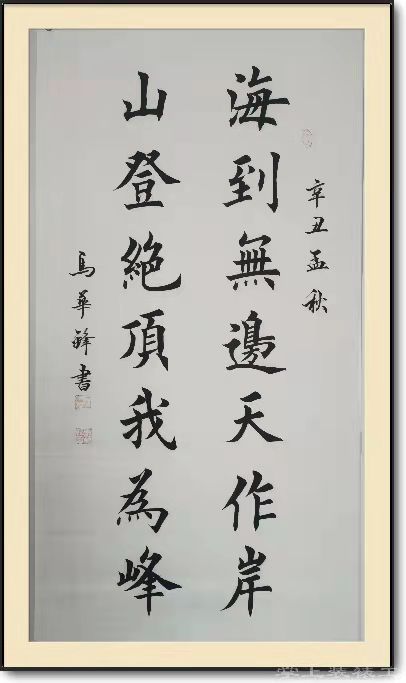 辛丑孟秋
海到無邊天作岸
山登絶頂我為峰
馬華鋒書
掌上装裱